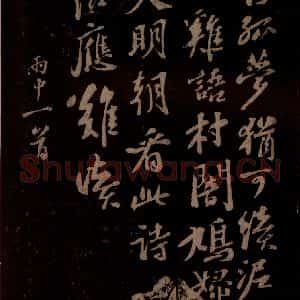 孤夢猶可續泥
雞語村閣鳩婦
明朝看此詩
應難讀
雨中一首
Shufawang.CN